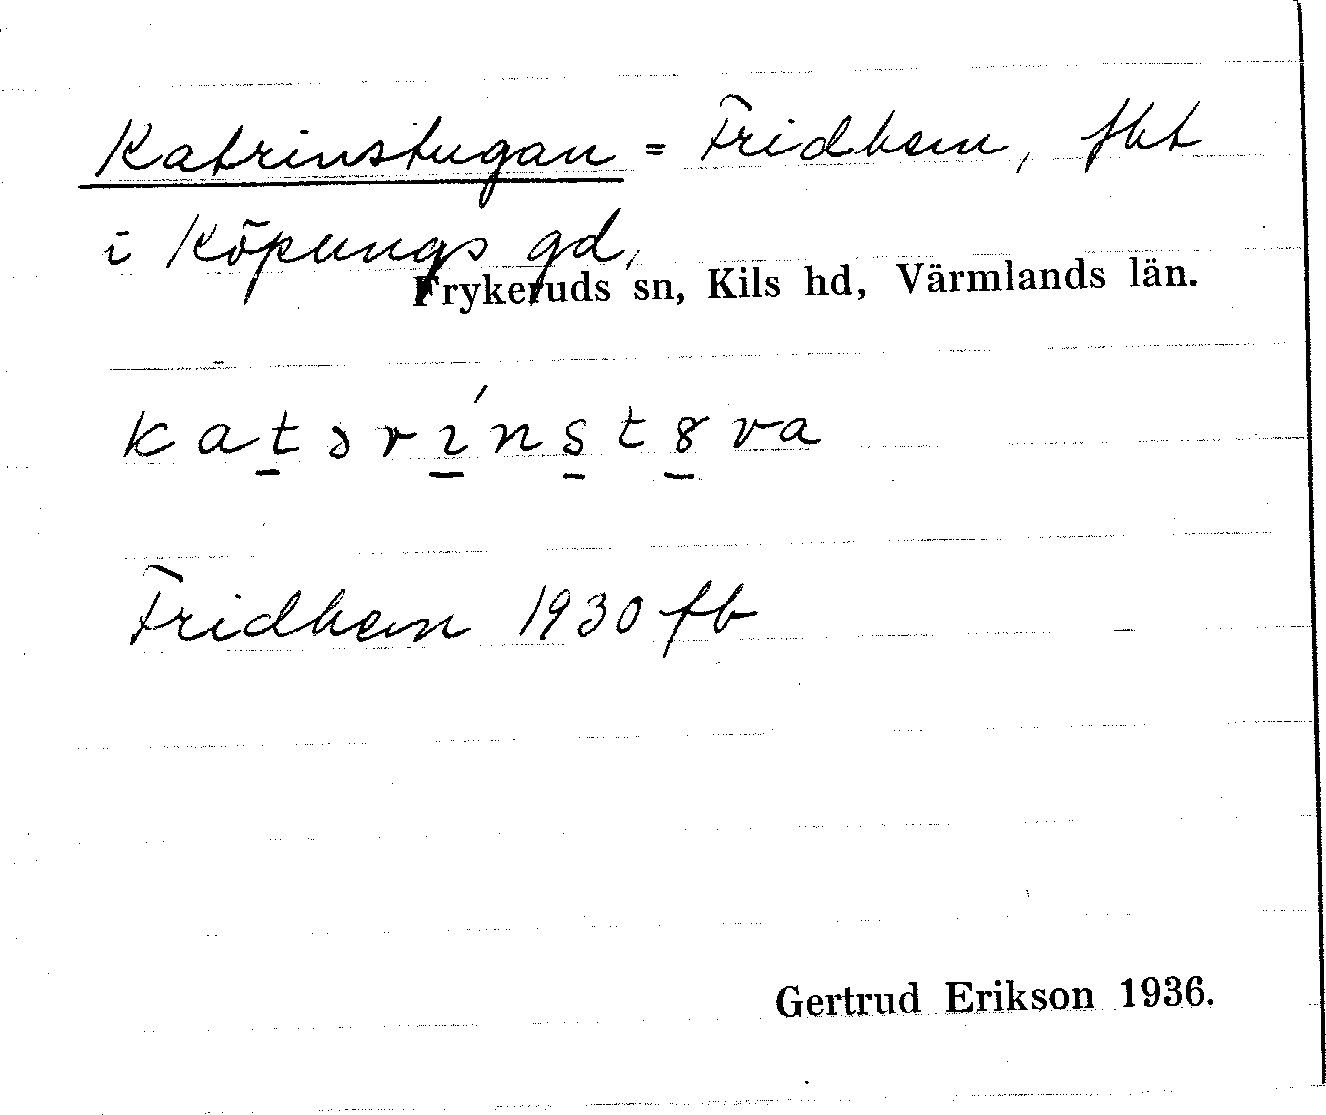 Katrinstugan = Fridhem, fht
i Köpungs gd,
Frykeruds sn, Kils hd, Värmlands län.
katərínst8va
Fridhem 1930 fb
Gertrud Erikson 1936.